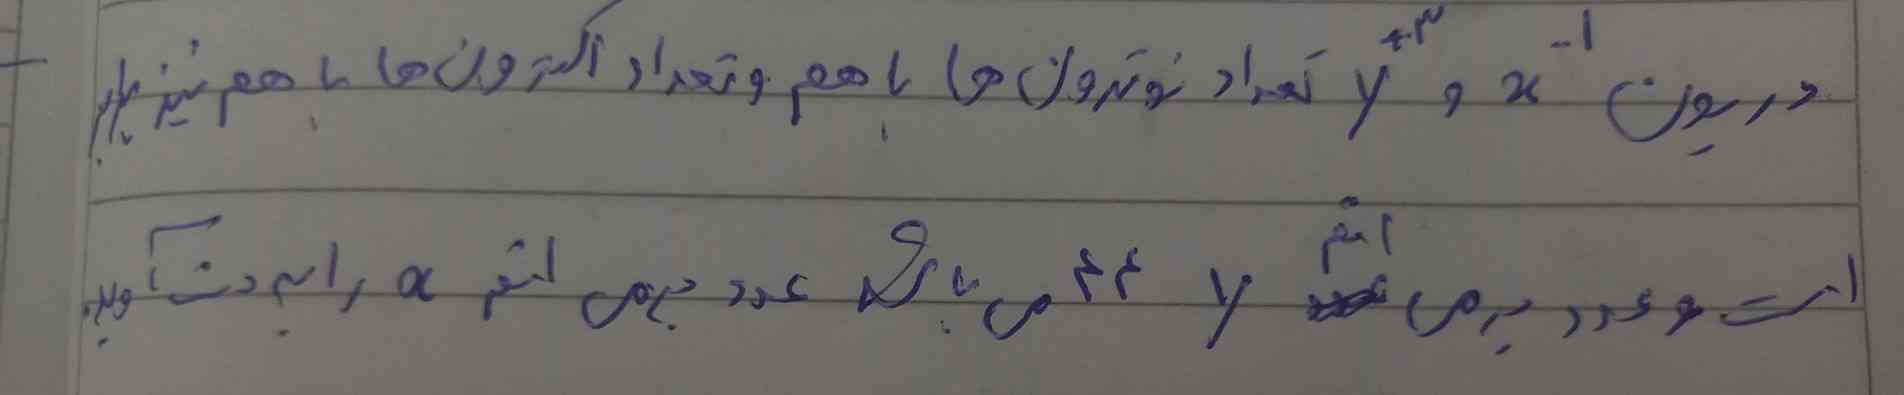 در یون x⁻¹ و y⁺³ تعداد نوترون ها با هم و تعداد الکترون ها با هم نیز برابر
است و عدد جرمی اتم y ۴۴ می باشد عدد جرمی اتم x را بدست آورید